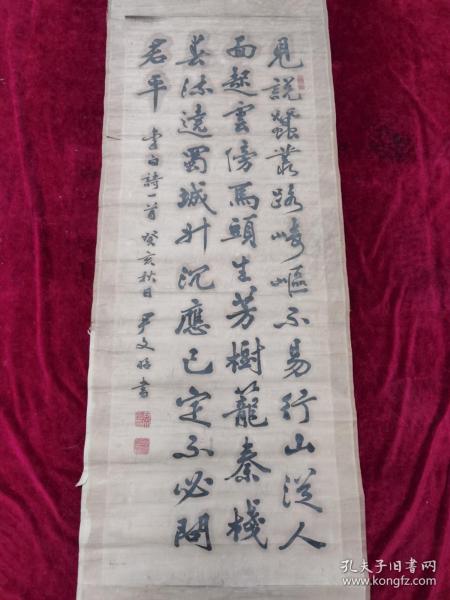 見說蠶叢路崎嶇不易行山從人
面起雲傍馬頭生芳樹籠秦棧
春流遶蜀城升沉應已定不必問
君平 李白詩一首 癸亥秋日 尹文 書
孔夫子旧书网
https://www.kongfz.com/